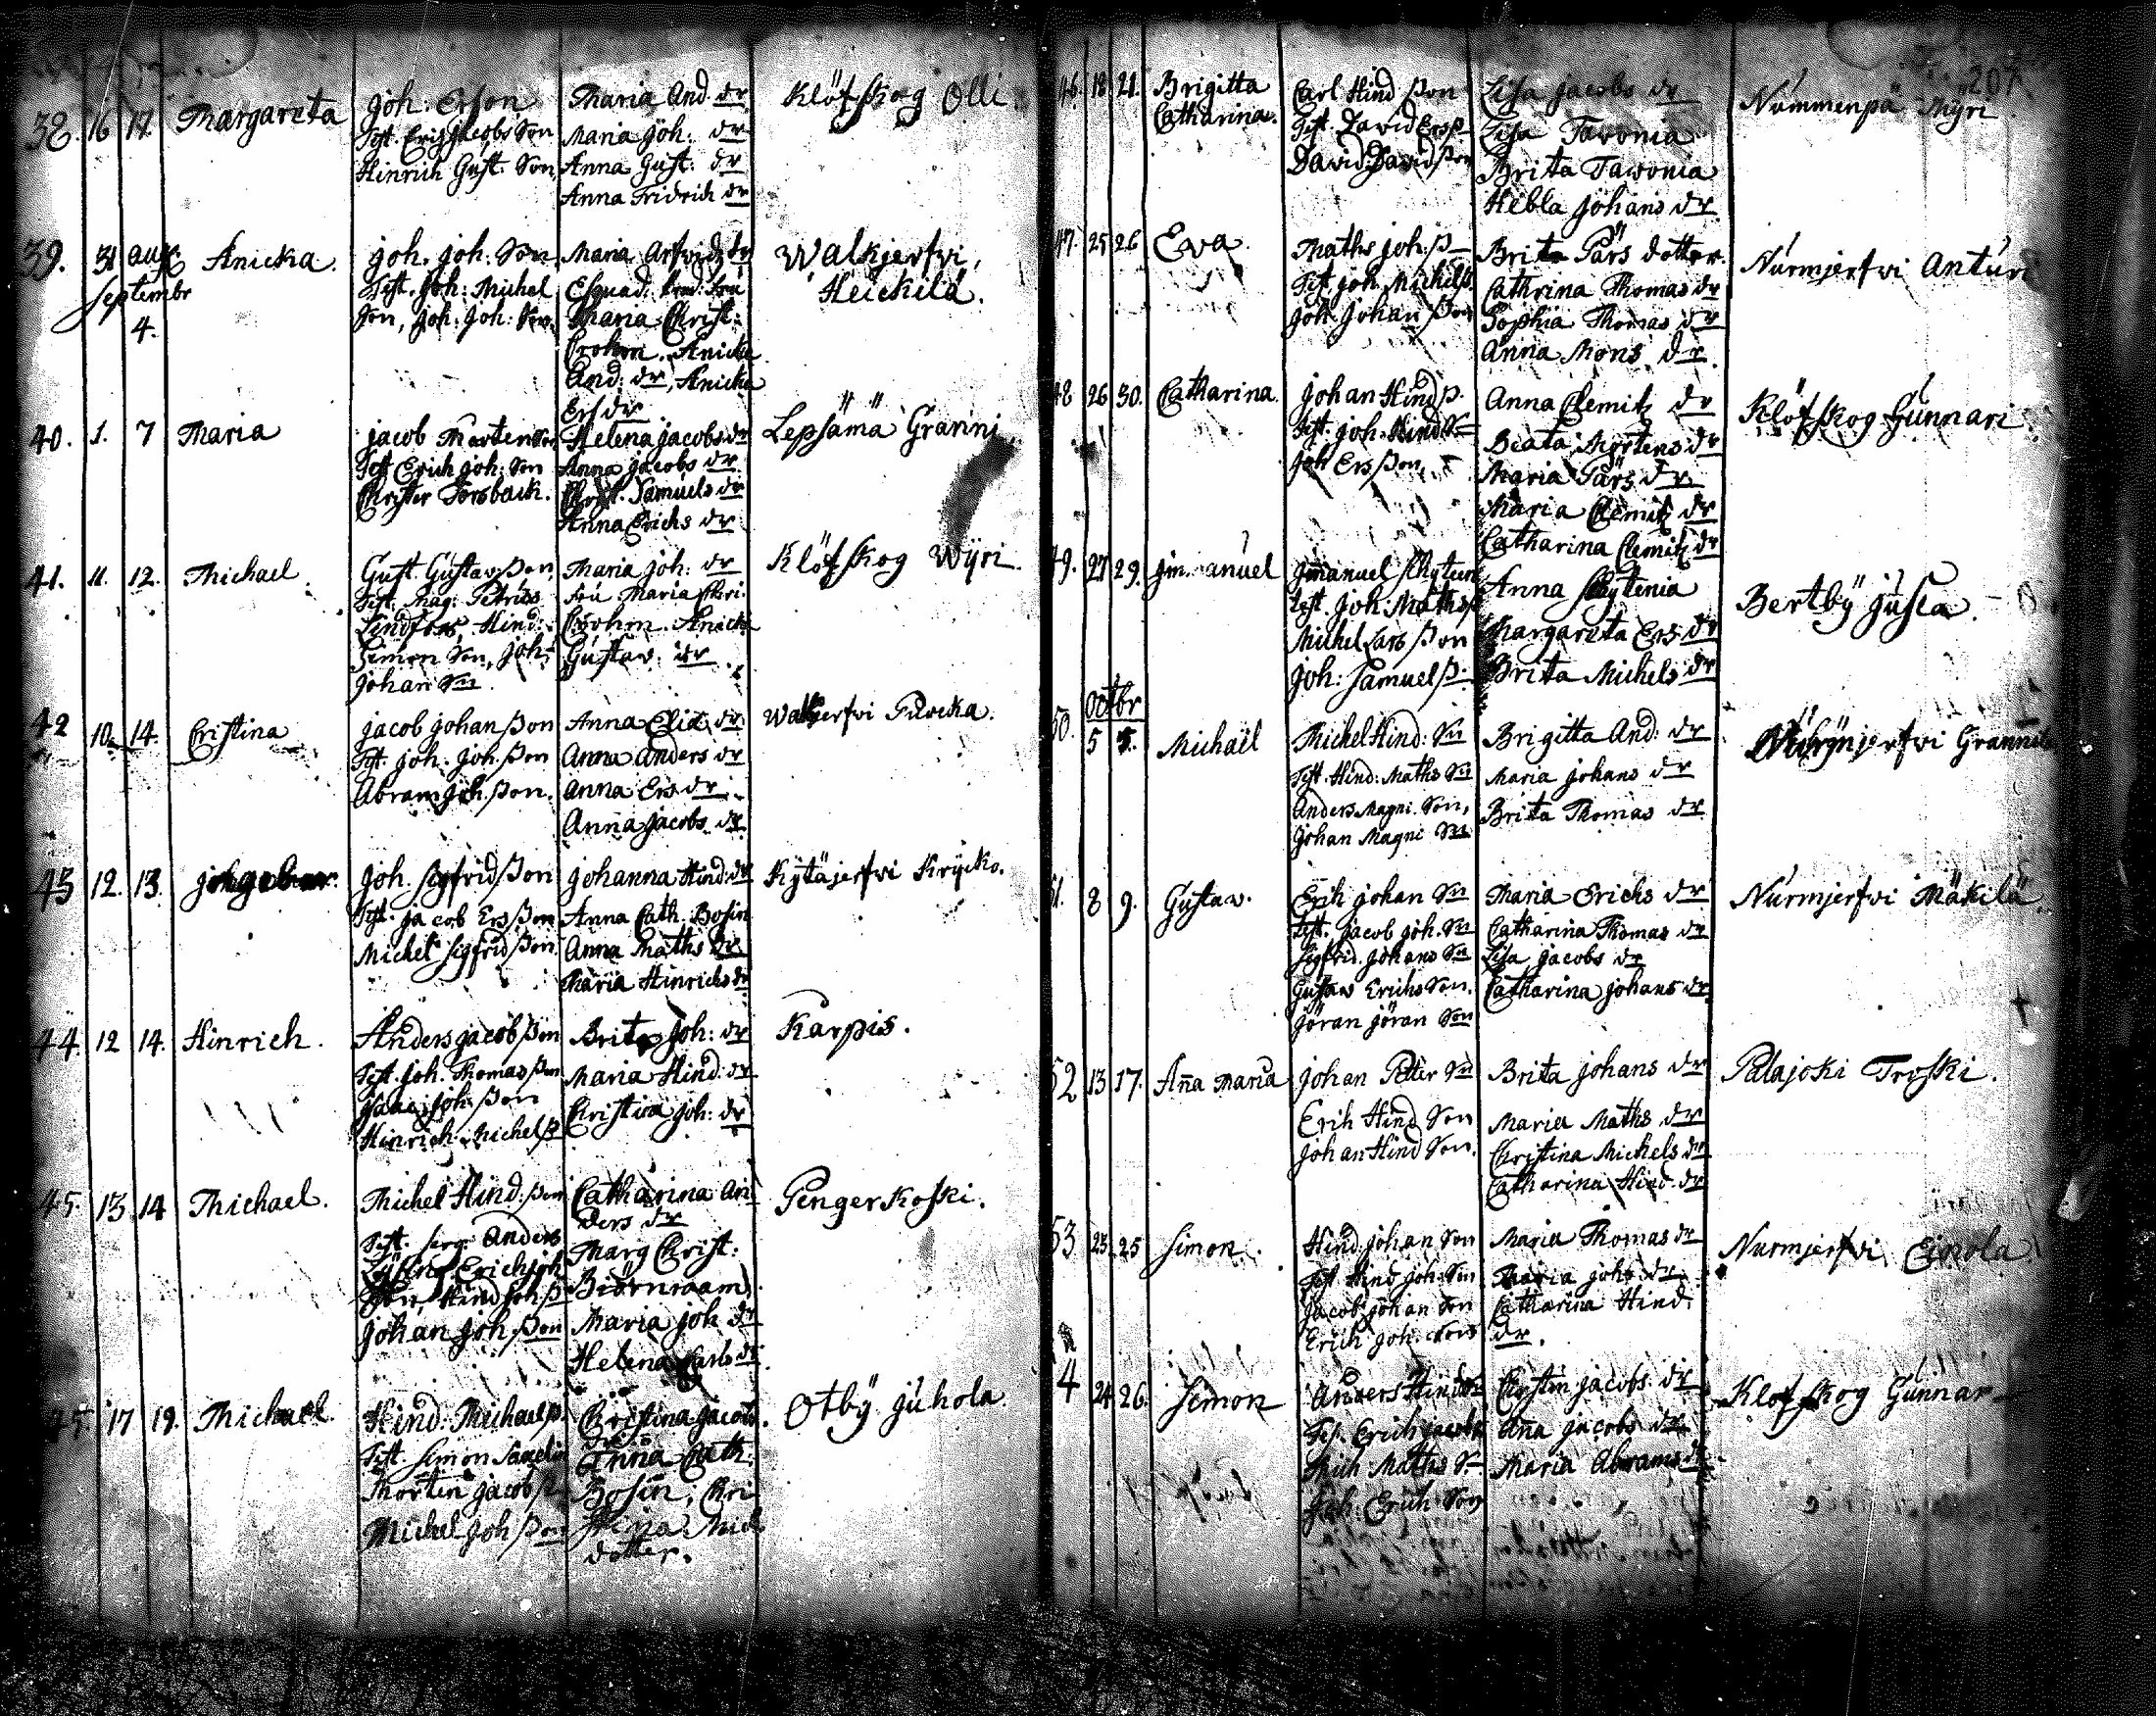 38. 16 17. Margareta Joh: Erson Maria And. dr Klöfskog Olli.
Test. Erich Jacobs Son Maria Joh: dr
Hinrich Gust. Son, Anna Gust: dr
Anna Fridrich dr
39. 31 Aug. Anicka. Joh. Joh: Son Maria Arfvids dr Walkjerfvi,
Septembr Test. Joh: Michel Heickilä.
4. Son, Joh: Joh: Son. Maria Christ:
Anicka
And: dr, Anicka
Ers dr
40. 1. 7 Maria Jacob Morten Son Helena Jacobs dr Lepsämä Granni
Test Erich Joh: Son Anna Jacobs dr
Christer Forsback. Christ. Samuels dr
Anna Erichs dr
41. 11. 12. Michael. Gust. Gustavsson, Maria Joh: dr Klöfskog Wÿri
Test. Mag: Petrus fru Maria Chri.
Lindfors, Hind: Anicka
Simon Son, Joh: Gustav: dr
Johan Son
42 10. 14. Cristina Jacob Johansson Anna Elia dr Walkjerfvi
Test. Joh. Joh. sson Anna Anders dr
Abram Joh. sson. Anna Ers dr
Anna Jacobs dr
43 12. 13. Joh. Sigfridsson Johanna Hind: dr Kÿtäjerfvi Krÿcko.
Test. Jacob Ersson Anna Cath. Bosin
Michel Sigfridsson Anna Maths dr
Maria Hinrichs dr
44. 12 14. Hinrich. Anders Jacobsson Brita Joh: dr Karpis.
Test. Joh. Thomasson Maria Hind: dr
Joh. sson Christina Joh: dr
Hinrich Michels
45. 13. 14 Michael. Michel Hind: sson Catharina An Gengerkoski.
ders dr
Test. Serg. Anders Marg Christ:
Erich Joh Biörnraam
Son, Hind Joh.
Johan Joh. sson Maria Joh dr
Helena Carls dr
17 19. Michael Hind. Michaels Christina Jacobs. Otbÿ Juhola.
Test. Simon Anna Cath.
Morten Jacob Bosin, Chri
Michel Joh sson stina Mich
dotter.
207
46. 18 21. Brigitta Carl Hind sson Lisa Jacobs dr Nummenpä Mÿri
Catharina. Test. David Erss Lisa Tavonia
David Davidsson Brita Tavonia
Hebla Johans dr
47. 25 26 Eva. Maths Joh: Brita Pärs dotter. Nurmjerfvi Anturi
Test. Joh. Michels Cathrina Thomas dr
Joh. Johansson Sophia Thomas dr
Anna Mons dr.
48 26 30. Catharina. Johan Hind. Anna Clemitz dr Klöfskog Gunnari.
Test. Joh. Hind Beata Mortens dr
Joh Ersson Maria Pärs dr.
Maria Clemitz dr
Catharina Clemitz dr
49. 27 29. Immanuel Immanuel Anna Skytenia Bertbÿ Jusla.
Test. Joh: Maths Margareta Ers dr
Michel Larsson Brita Michels dr
Joh: Samuels
Octbr
50. 5 5. Michaël Michel Hind: Son Brigitta And: dr Nurmjerfvi
Test. Hind: Maths Son Maria Johans dr
Anders Magni. Son, Brita Thomas dr
Johan Magni Son
51. 8 9. Gustav. Erih Johan Son Maria Erichs dr Nurmjerfvi Mäkilä
Test. Jacob Joh. Son Catharina Thomas dr
Sigfrid. Johans Son Lisa Jacobs dr
Gustav Erichs Son. Catharina Johans dr
Jöran Jöran Son
52 13 17. Anna Maria Johan Petter Son Brita Johans dr Palajoki Troski.
Erih Hind Son Maria Maths dr
Johan Hind Son. Christina Michels dr
Catharina Hind. dr
53 23. 25 Simon. Hind Johan Son Maria Thomas dr Nurmjerfvi Einola
Test Hind Joh: Son Maria Joh: dr
Jacob Johan Son Catharina Hind.
Erich Joh. Sons dr.
4 24 26. Simon Anders Hind Cirstin Jacobs. dr Klofskog Gunnar
Test. Erich Jacobs Anna Jacobs dr
Erich Maths Son Maria Abrams dr
Joh. Erich Son